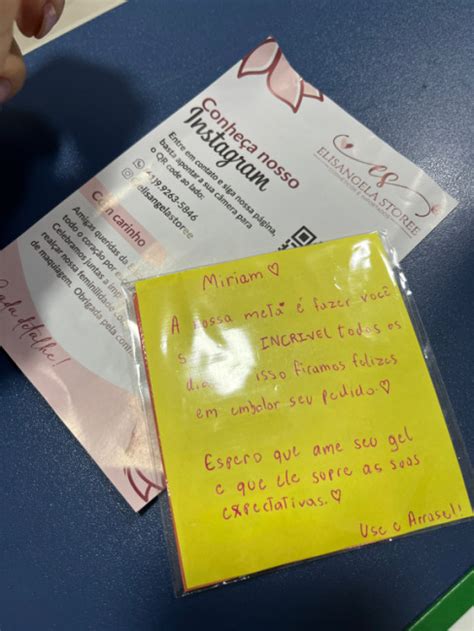 Conheça nosso
Instagram
Entre em contato e siga nossa página,
basta apontar a sua câmera para
o QR code ao lado:
9.9263-5846
elisangelastoree
es
ELISANGELA STOREE
Com carinho
Amigas queridas da
todo o coração por
Celebramos juntas a
realçar nossa feminilidade
de maquiagem. Obrigada pela
detalhe!
Miriam ♡
A nossa meta é fazer você
INCRIVEL todos os
isso firamos felizes
em embalar seu pedido.♡
Espero que ame seu gel
e que ele sopre as suas
expectativas.♡
Use e Arrase!!